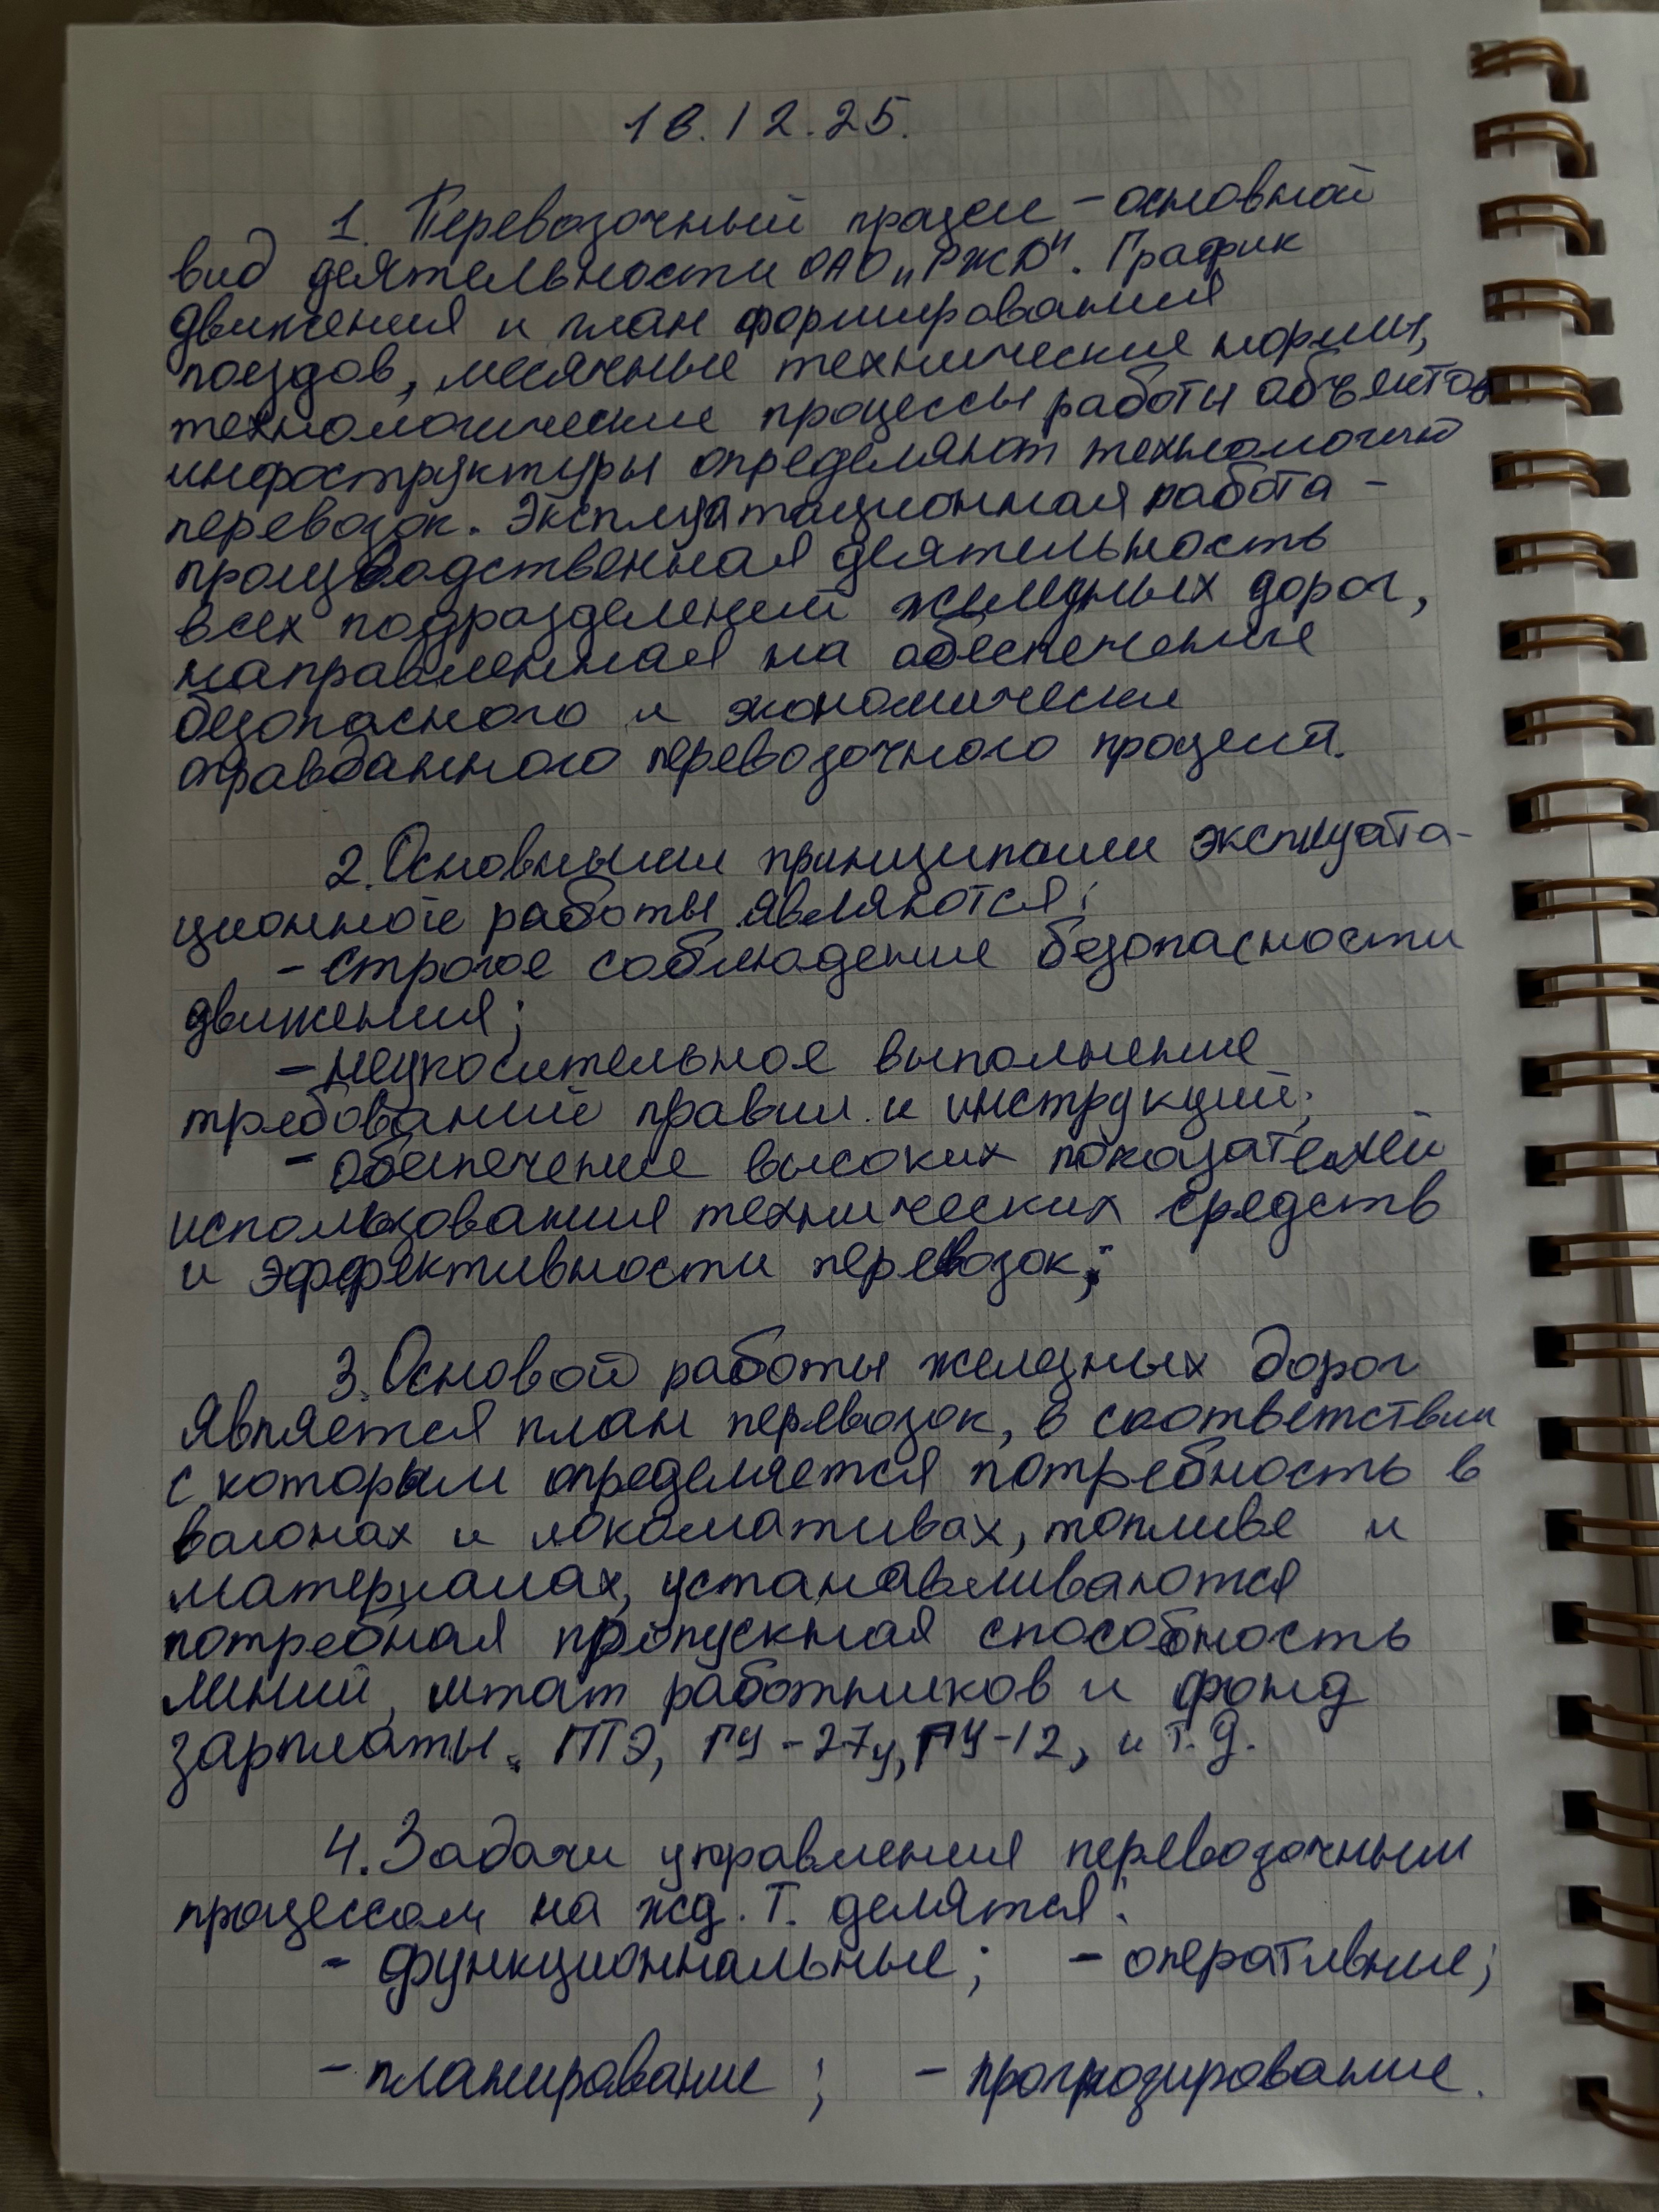 18.12.25.
1. Перевозочный процесс - основной
вид деятельности ОАО „РЖД". График
движения и план формирования
поездов, месячные технические нормы,
технологические процессы работы объектов
инфраструктуры определяют технологию
перевозок. Эксплуатационная работа -
производственная деятельность
всех подразделений железных дорог,
направленная на обеспечение
безопасного и экономически
оправданного перевозочного процесса.
2. Основными принципами эксплуата-
ционной работы являются:
- строгое соблюдение безопасности
движения;
- неукоснительное выполнение
требований правил и инструкций;
- обеспечение высоких показателей
использования технических средств
и эффективности перевозок;
3. Основой работы железных дорог
является план перевозок, в соответствии
с которым определяется потребность в
вагонах и локомативах, топливе и
материалах, устанавливаются
потребная пропускная способность
линий, штат работников и фонд
зарплаты. ПТЭ, ГУ-27у, ГУ-12, и т.д.
4. Задачи управления перевозочным
процессом на жд. т. делятся:
- функциональные; - оперативные;
- планирование; - прогнозирование.